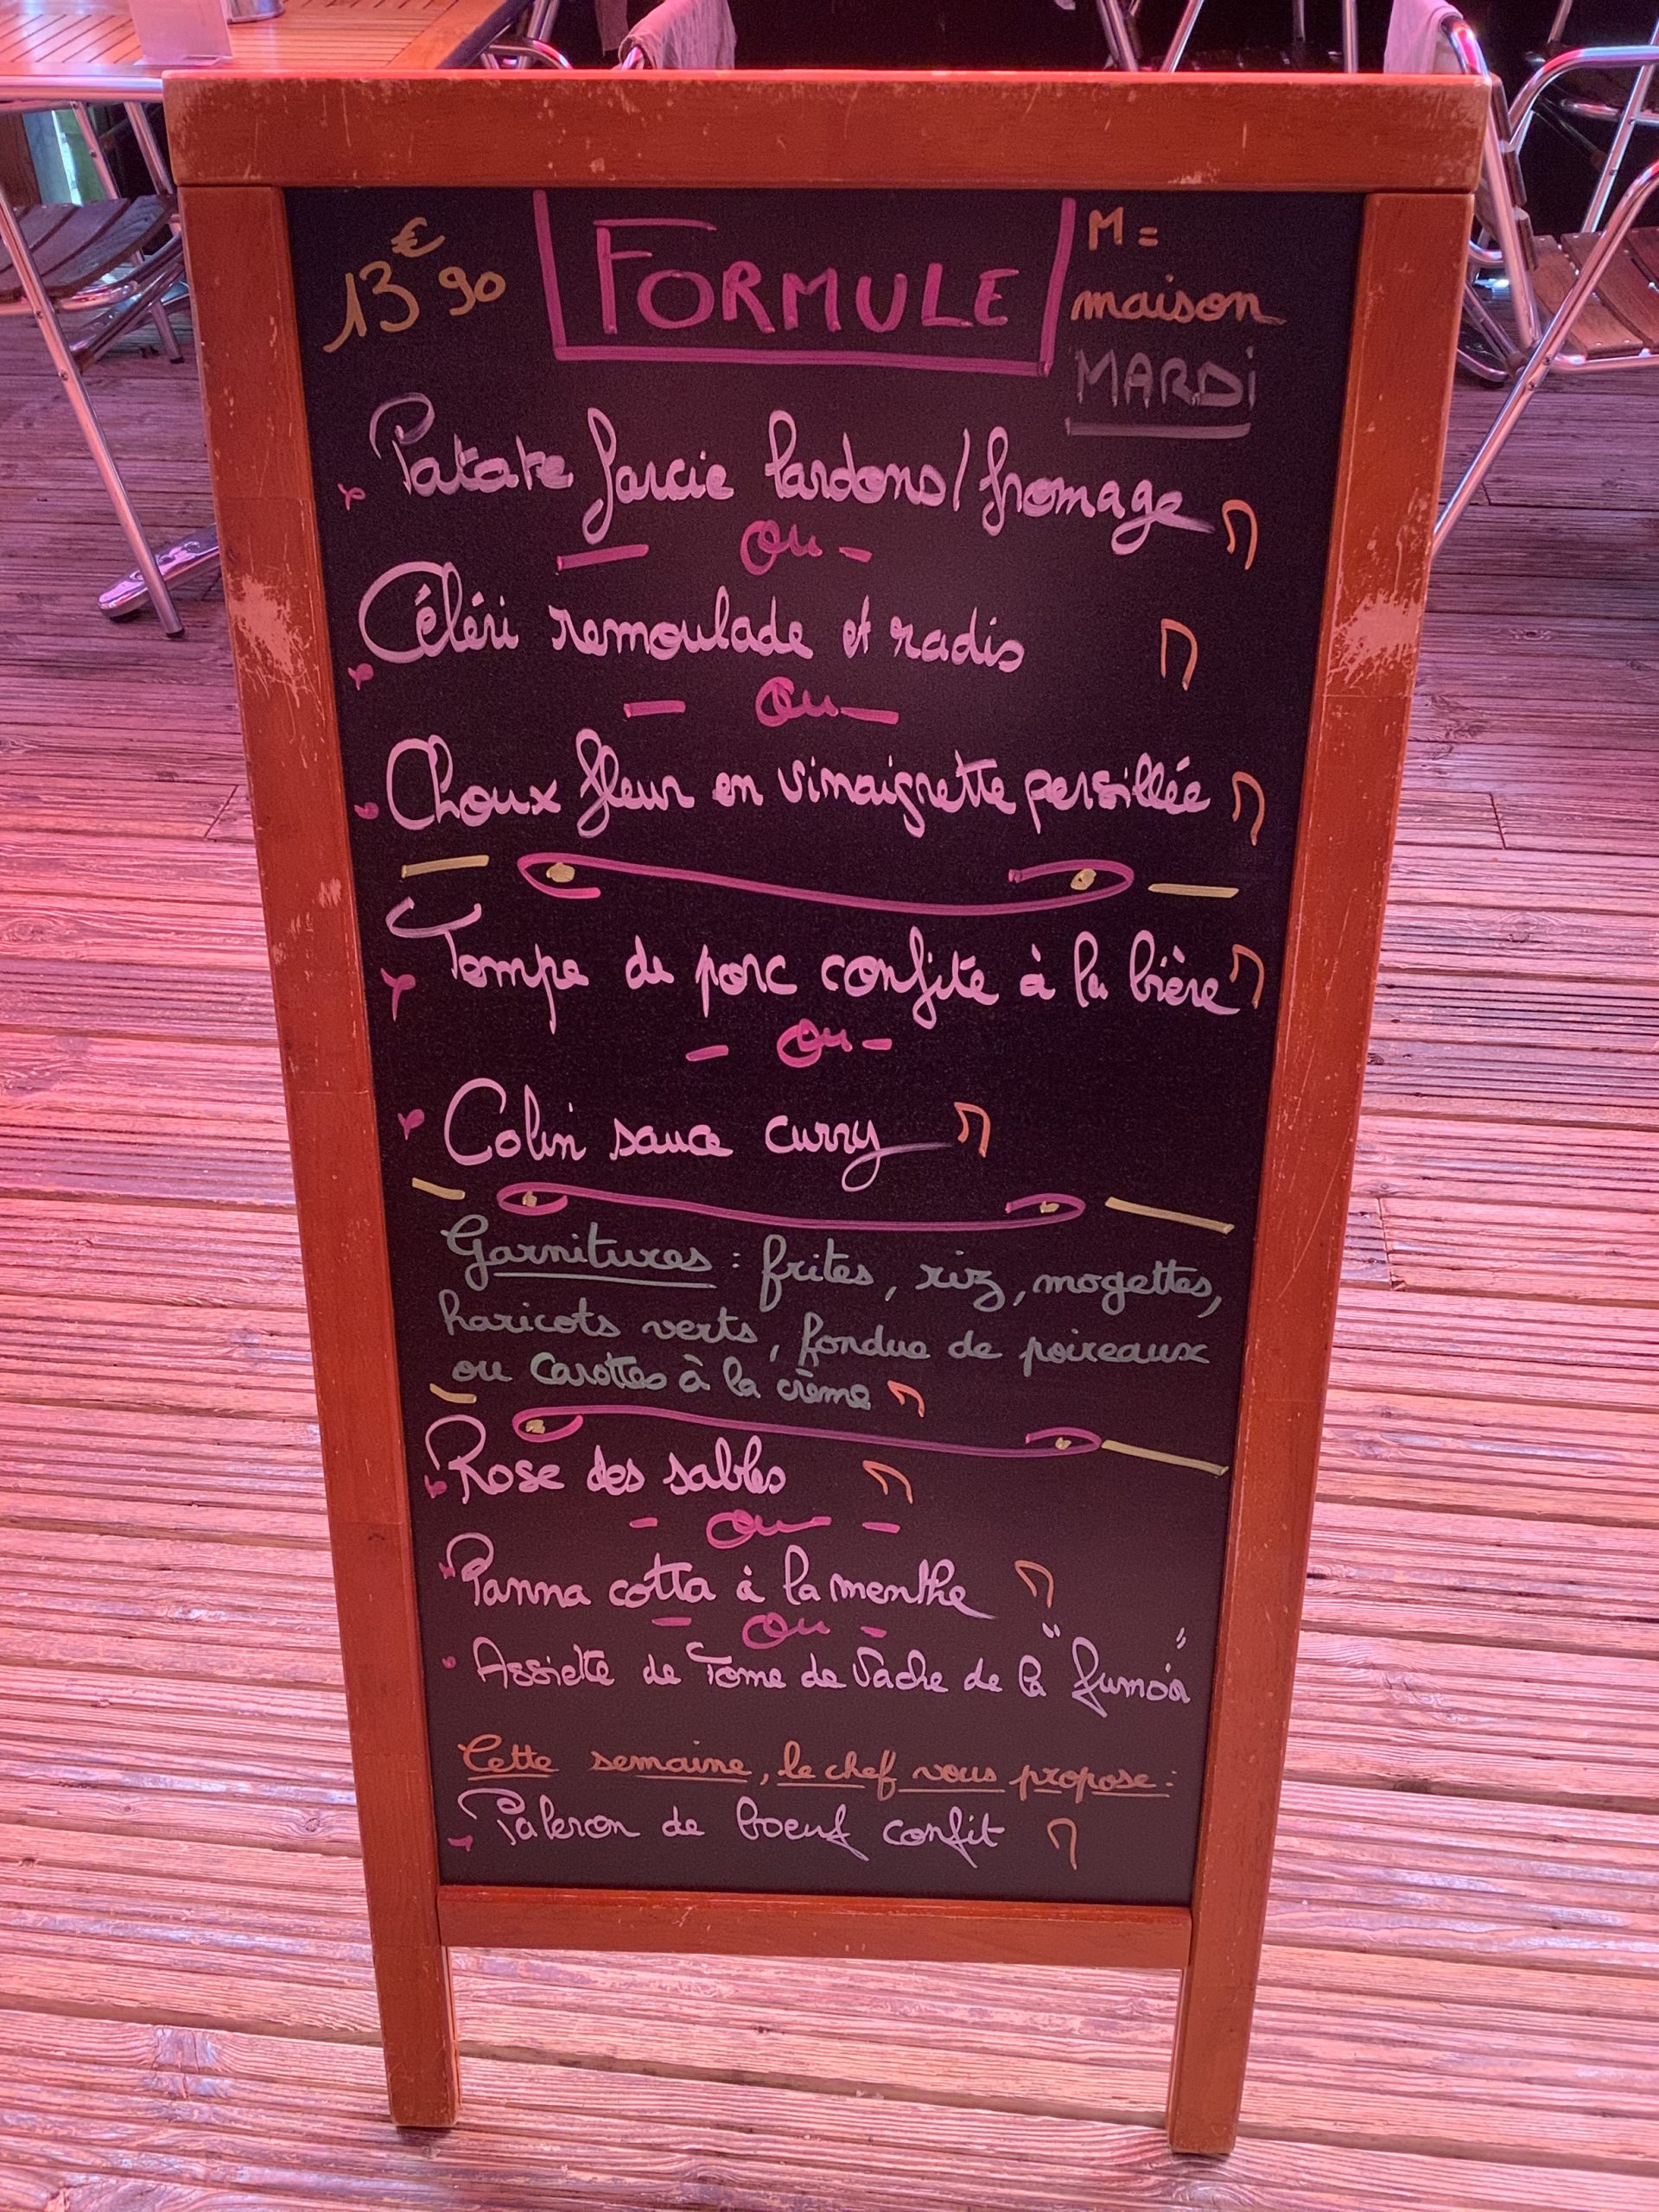 13€90
FORMULE
M =
maison
MARDi
Patate farcie lardons/fromage M
- Ou -
Céléri remoulade et radis M
- Ou -
Choux fleur en vinaigrette persillée M
Tompe de porc confite à la bière M
- Ou -
Colin sauce curry M
Garnitures : frites, riz, mogettes,
haricots verts, fondue de poireaux
ou carottes à la crème M
Rose des sables M
- Ou -
Panna cotta à la menthe M
- Ou -
Assiette de Tome de Vache de la
Cette semaine, le chef vous propose :
Paleron de boeuf confit M